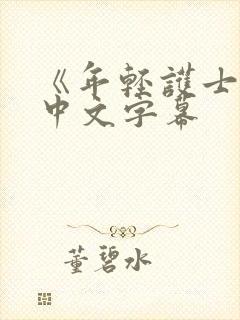 《年轻護士
中文字幕
董碧水